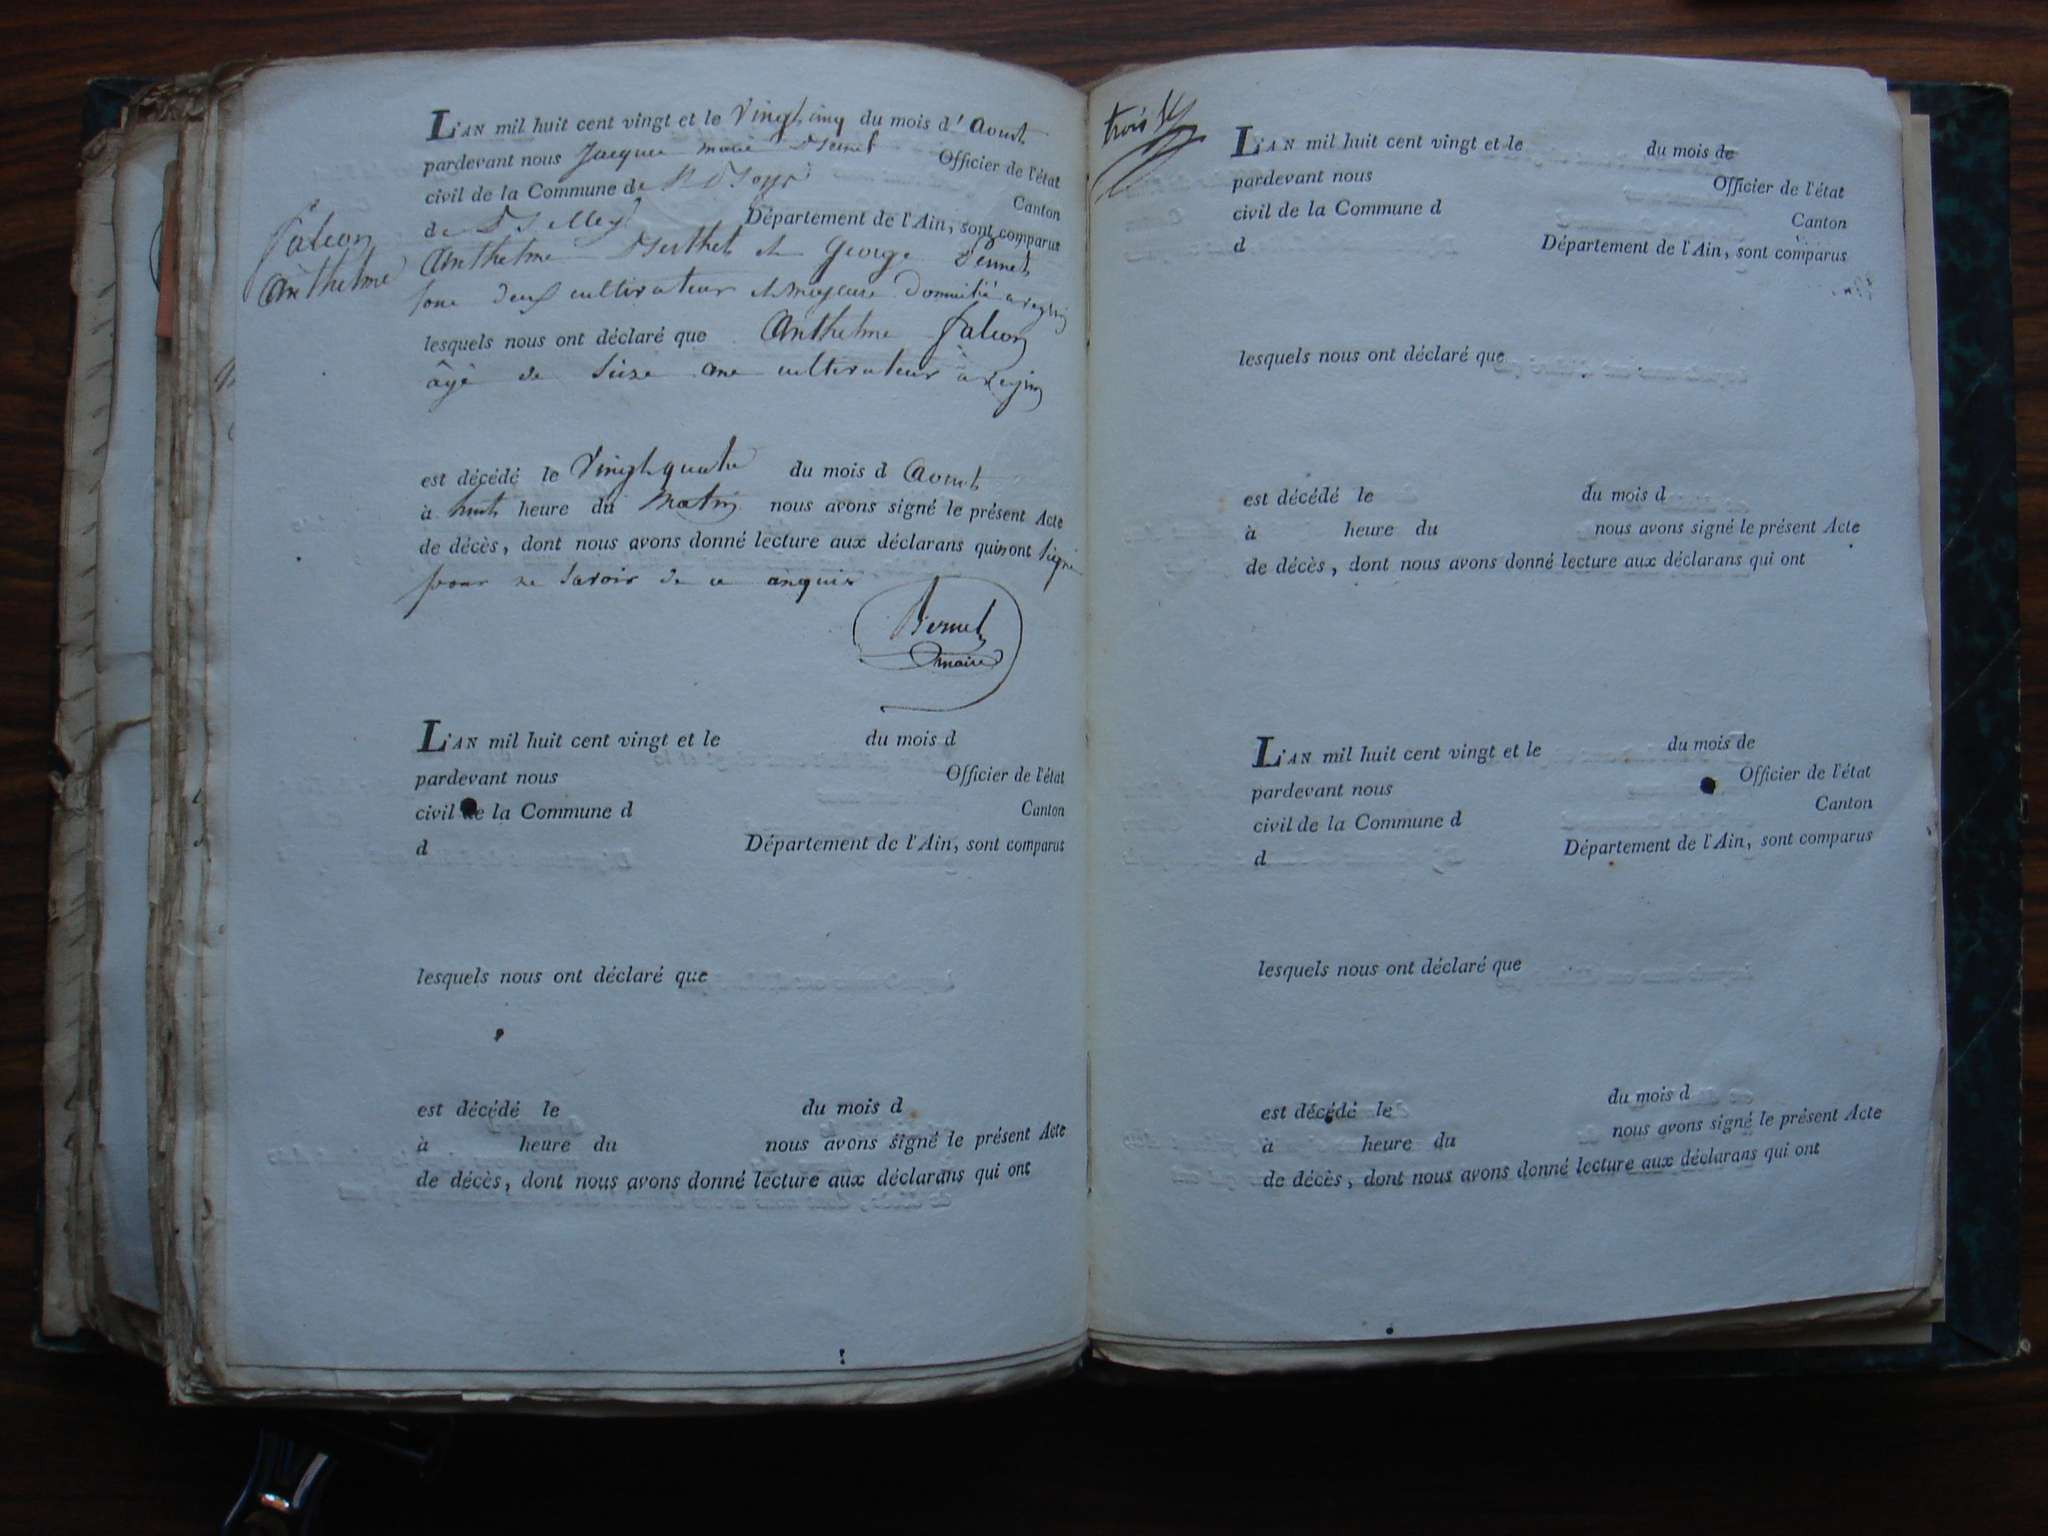 L'AN mil huit cent vingt et le Vingt cinq du mois d' Aoust
pardevant nous Jacque marie Officier de l'état
civil de la Commune de Canton
de Département de l'Ain, sont comparus
falcon
Anthelme
Anthelme Berthet et George
sone deux cultivateur domicilié a
lesquels nous ont déclaré que Anthelme falcon
âgé de seize ane cultivateur a
est décédé le Vingt quatre du mois d Aoust
à huit heure du Matin nous avons signé le présent Acte
de décès, dont nous avons donné lecture aux déclarans qui n ont signé
pour ne savoir de ce anquis
Bernet
maire
L'AN mil huit cent vingt et le du mois d
pardevant nous Officier de l'état
civil de la Commune d Canton
d Département de l'Ain, sont comparus
lesquels nous ont déclaré que
est décédé le du mois d
à heure du nous avons signé le présent Acte
de décès, dont nous avons donné lecture aux déclarans qui ont
trois
L'AN mil huit cent vingt et le du mois de
pardevant nous Officier de l'état
civil de la Commune d Canton
d Département de l'Ain, sont comparus
lesquels nous ont déclaré que
est décédé le du mois d
à heure du nous avons signé le présent Acte
de décès, dont nous avons donné lecture aux déclarans qui ont
L'AN mil huit cent vingt et le du mois de
pardevant nous Officier de l'état
civil de la Commune d Canton
d Département de l'Ain, sont comparus
lesquels nous ont déclaré que
est décédé le du mois d
à heure du nous avons signé le présent Acte
de décès, dont nous avons donné lecture aux déclarans qui ont